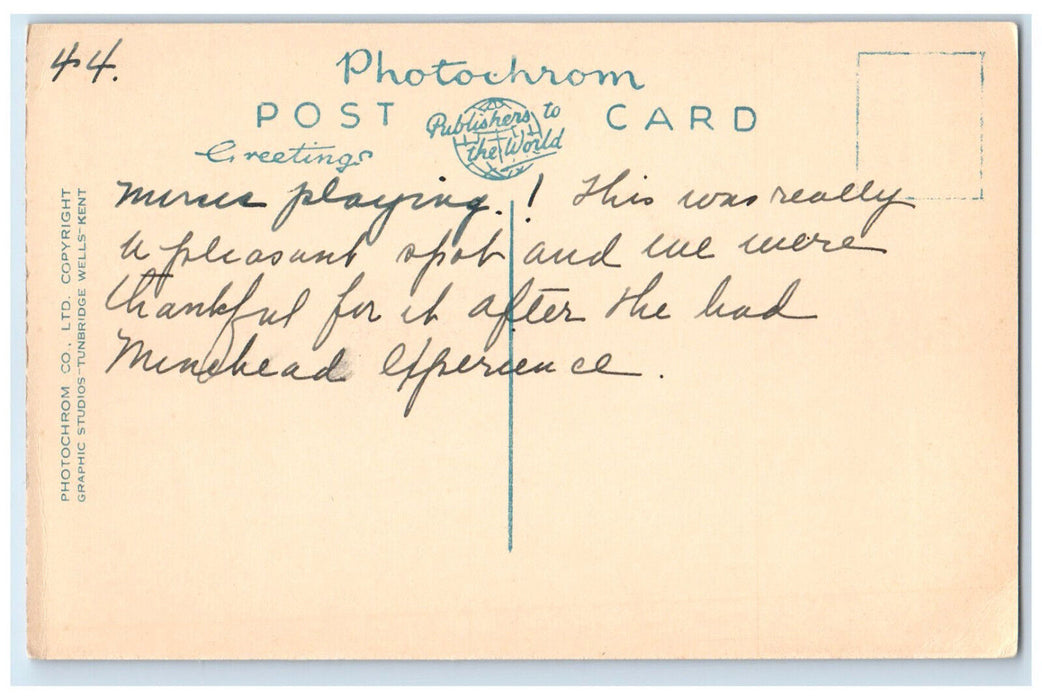 44.
Photochrom
POST CARD
Publishers to
the World
Greetings
music playing.! This was really
a pleasant spot and we were
thankful for it after the bad
Minehead experience.
PHOTOCHROM CO., LTD. COPYRIGHT
GRAPHIC STUDIOS-TUNBRIDGE WELLS-KENT